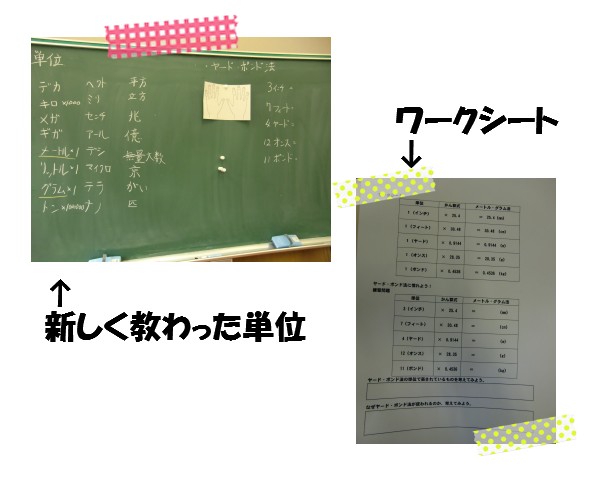 単位
デカ ヘクト 平方
キロ×1000 ミリ 立方
メガ センチ 兆
ギガ アール 億
メートル×1 デシ 無量大数
リットル×1 マイクロ 京
グラム×1 テラ がい
トン ナノ 匹
・ヤード ポンド法
3インチ=
7フィート=
4ヤード=
12オンス=
11ポンド=
↑
新しく教わった単位
ワークシート
↓
単位 かん算式 メートル・グラム法
1（インチ） × 25.4 ＝ 25.4（mm）
1（フィート） × 30.48 ＝ 30.48（cm）
1（ヤード） × 0.9144 ＝ 0.9144（m）
1（オンス） × 28.35 ＝ 28.35（g）
1（ポンド） × 0.4536 ＝ 0.4536（kg）
ヤード・ポンド法に慣れよう！
練習問題
単位 かん算式 メートル・グラム法
3（インチ） × 25.4 ＝ （mm）
7（フィート） × 30.48 ＝ （cm）
4（ヤード） × 0.9144 ＝ （m）
12（オンス） × 28.35 ＝ （g）
11（ポンド） × 0.4536 ＝ （kg）
ヤード・ポンド法の単位で表されているものを考えてみよう。
なぜヤード・ポンド法が使われるのか、考えてみよう。